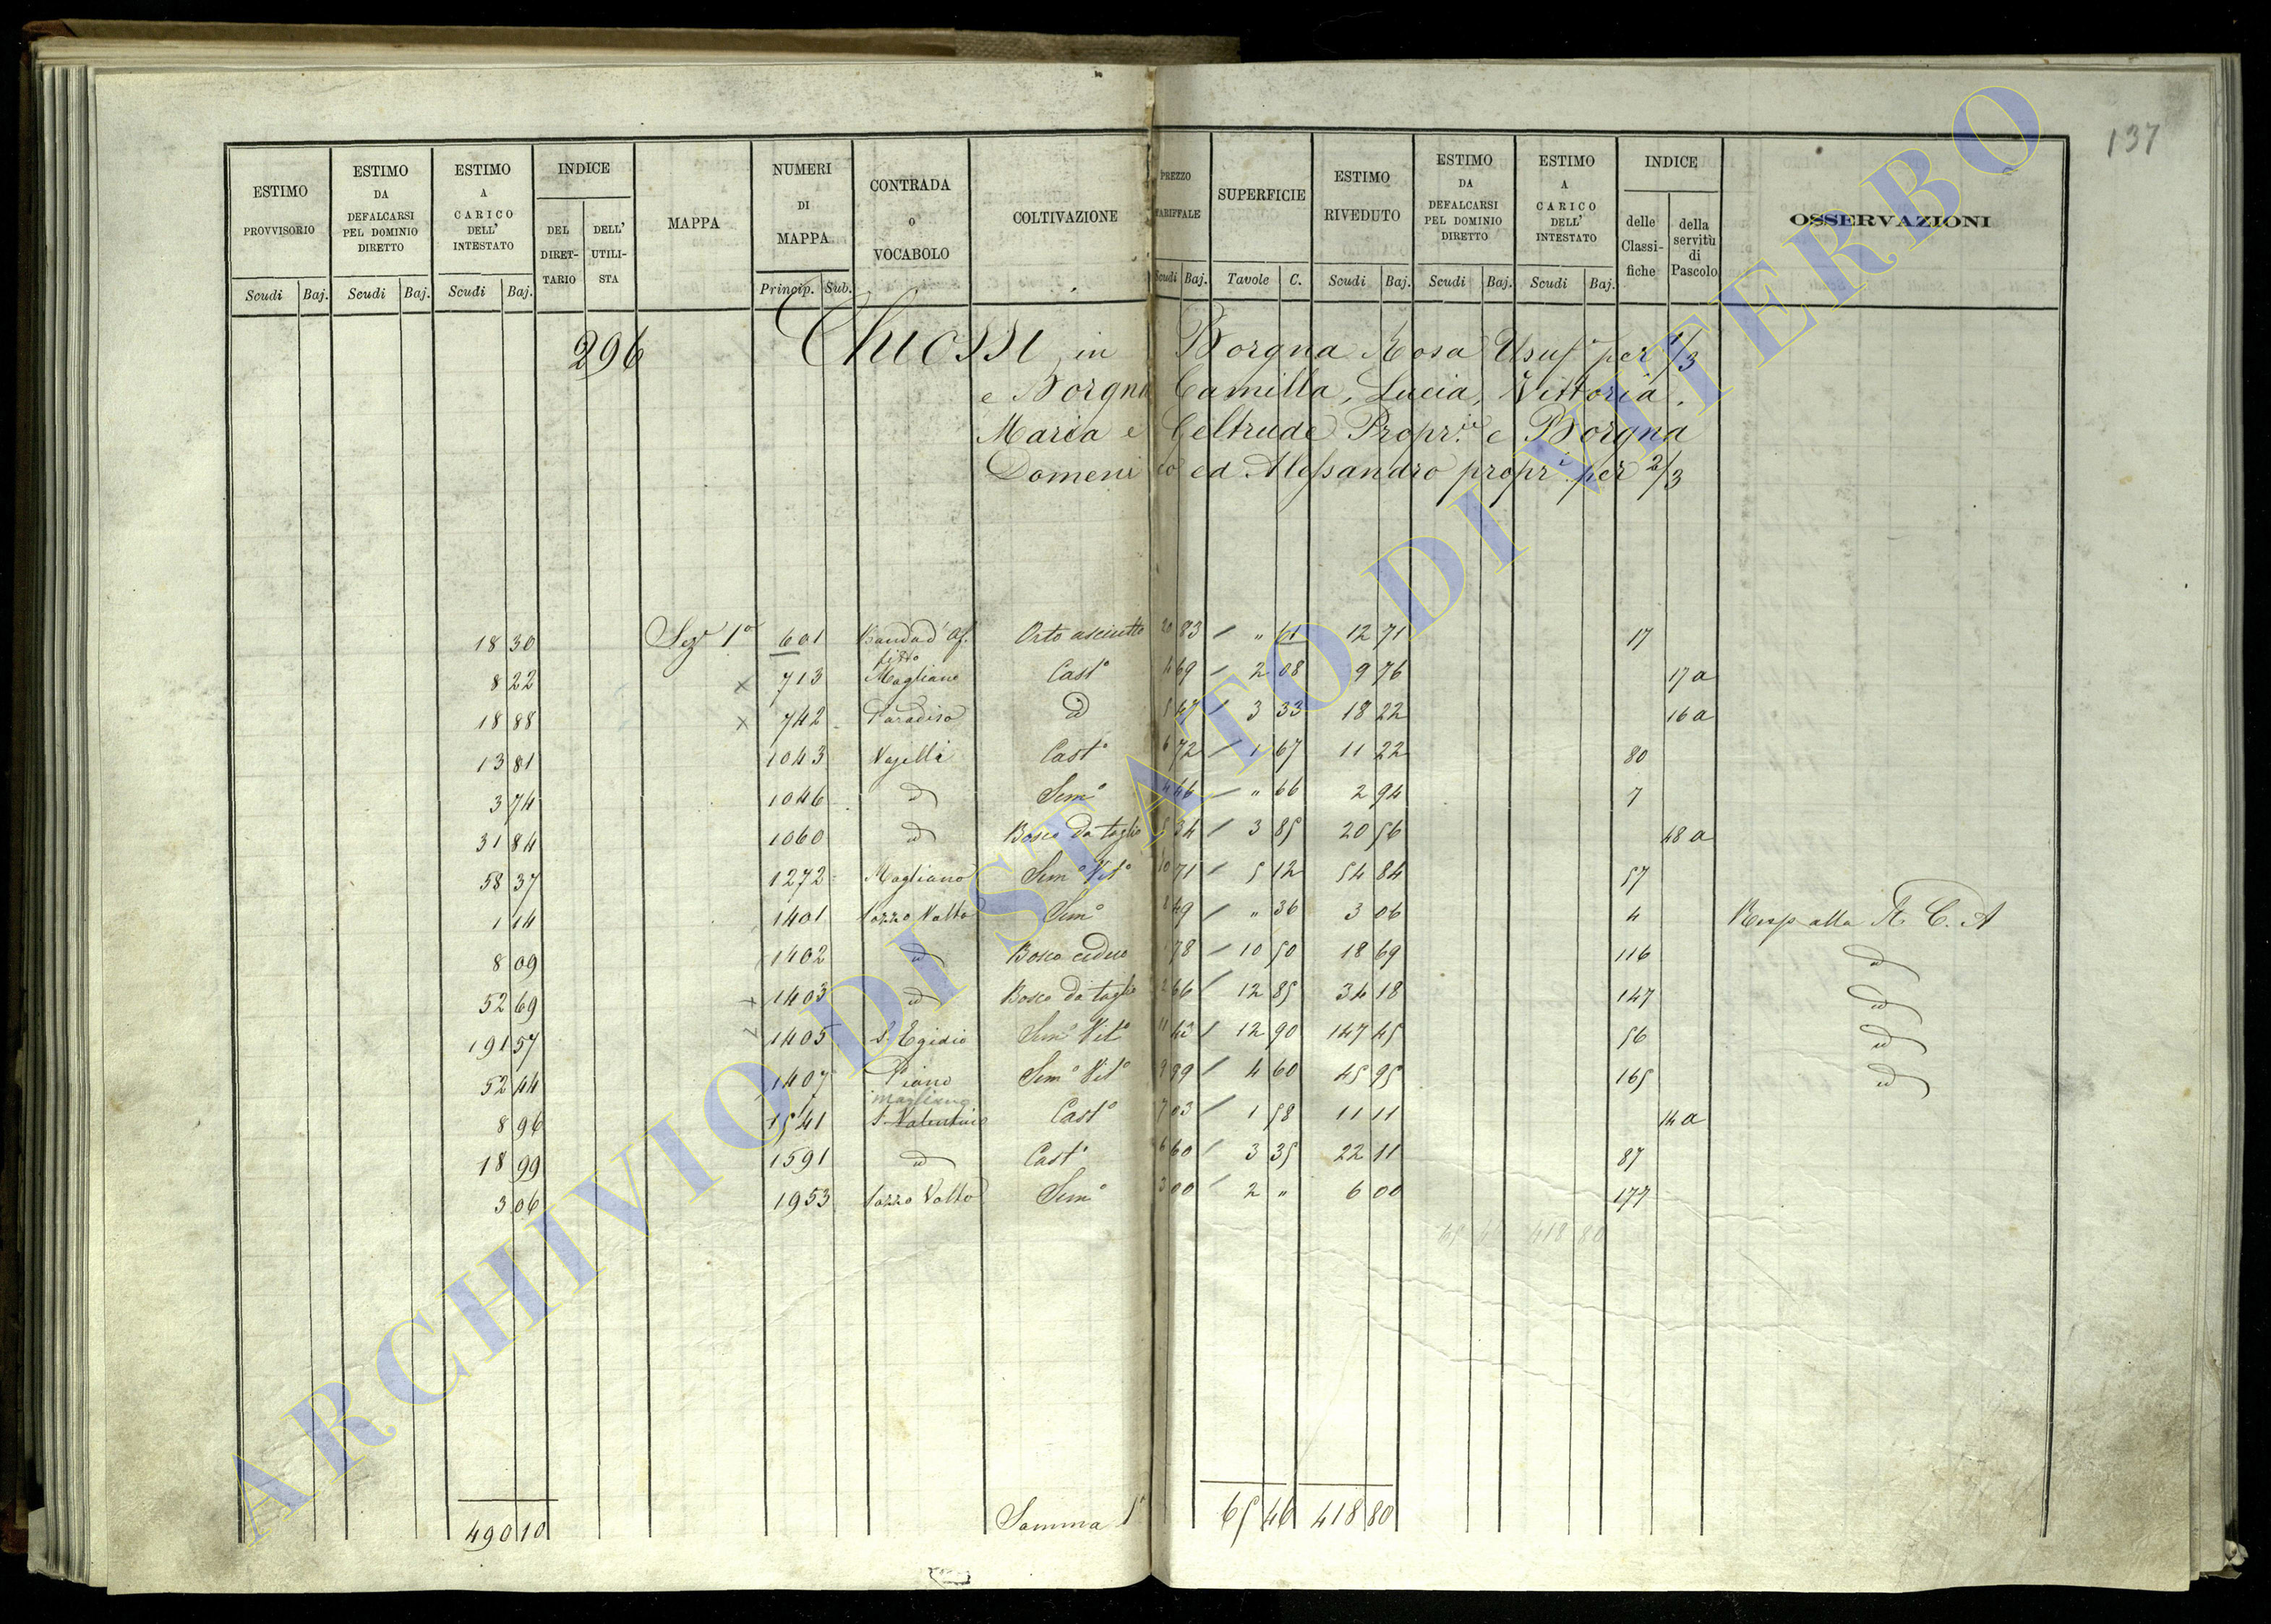 137
ESTIMO PROVVISORIO Scudi Baj.
ESTIMO DA DEFALCARSI PEL DOMINIO DIRETTO Scudi Baj.
ESTIMO A CARICO DELL' INTESTATO Scudi Baj.
INDICE DEL DIRETTARIO DELL' UTILISTA
MAPPA
NUMERI DI MAPPA Princip. Sub.
CONTRADA o VOCABOLO
COLTIVAZIONE
PREZZO TARIFFALE Scudi Baj.
SUPERFICIE Tavole C.
ESTIMO RIVEDUTO Scudi Baj.
ESTIMO DA DEFALCARSI PEL DOMINIO DIRETTO Scudi Baj.
ESTIMO A CARICO DELL' INTESTATO Scudi Baj.
INDICE delle Classifiche della servitù di Pascolo
OSSERVAZIONI
296 Chiossi in Borgna Rosa Usuf. per 1/3
e Borgna Camilla, Lucia, Vittoria,
Maria e Geltrude Propr.ie e Borgna
Domenico ed Alessandro propri per 2/3
18 30 Sez.e 1a 601 Orto asciutto 20 83 / " 61 12 71 17
8 22 x 713 Magliano Cast.o 4 69 / 2 08 9 76 17 a
18 88 x 742 Paradiso d 5 47 / 3 33 18 22 16 a
13 81 1043 Cast.o 6 72 / 1 67 11 22 80
3 74 1046 d Sem.o 4 46 / " 66 2 94 7
31 84 1060 d Bosco da taglio 5 34 / 3 85 20 56 48 a
58 37 1272 Magliano Sem.o Vit.o 10 71 / 5 12 54 84 57
1 14 1401 Pozzo Volto Sem.o 8 49 / " 36 3 06 4 Risp alla R. C. A
8 09 1402 d Bosco ceduo 1 78 / 10 50 18 69 116 d
52 69 x 1403 d Bosco da taglio 2 66 / 12 85 34 18 147 d
191 57 1405 S. Egidio Sem.o Vit.o 11 43 / 12 90 147 45 56 d
52 44 1407 Piano Magliano Sem.o Vit.o 9 99 / 4 60 45 95 165 d
8 96 1541 S. Valentino Cast.o 7 03 / 1 58 11 11 14 a
18 99 1591 d Cast.o 6 60 / 3 35 22 11 87
3 06 1953 Pozzo Volto Sem.o 3 00 / 2 " 6 00 177
65 46 418 80
490 10 Somma 65 46 418 80
ARCHIVIO DI STATO DI VITERBO